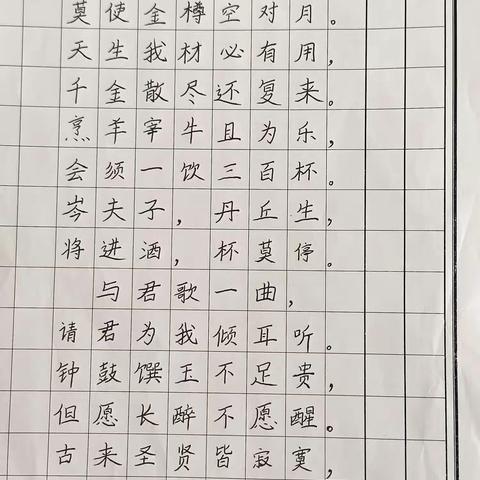 莫使金樽空对月。
天生我材必有用，
千金散尽还复来。
烹羊宰牛且为乐，
会须一饮三百杯。
岑夫子，丹丘生，
将进酒，杯莫停。
与君歌一曲，
请君为我倾耳听。
钟鼓馔玉不足贵，
但愿长醉不愿醒。
古来圣贤皆寂寞，